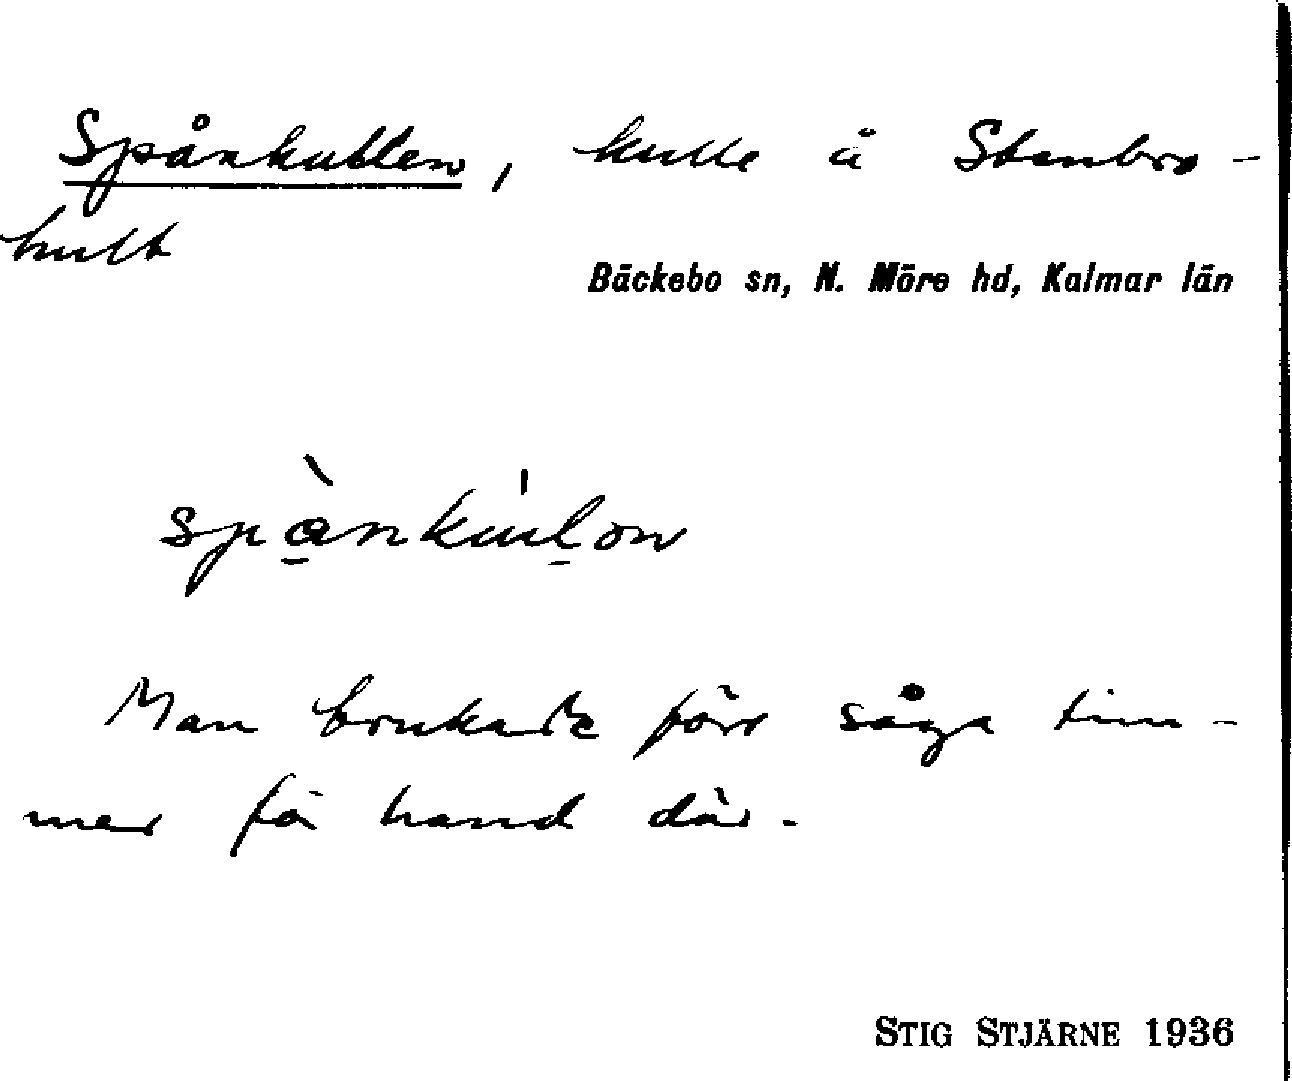 Spånkullen, kulle å Stenbro-
hult
Bäckebo sn, N. Möre hd, Kalmar län
spànkúlon
Man brukade förr såga tim-
mer för hand där.
STIG STJÄRNE 1936